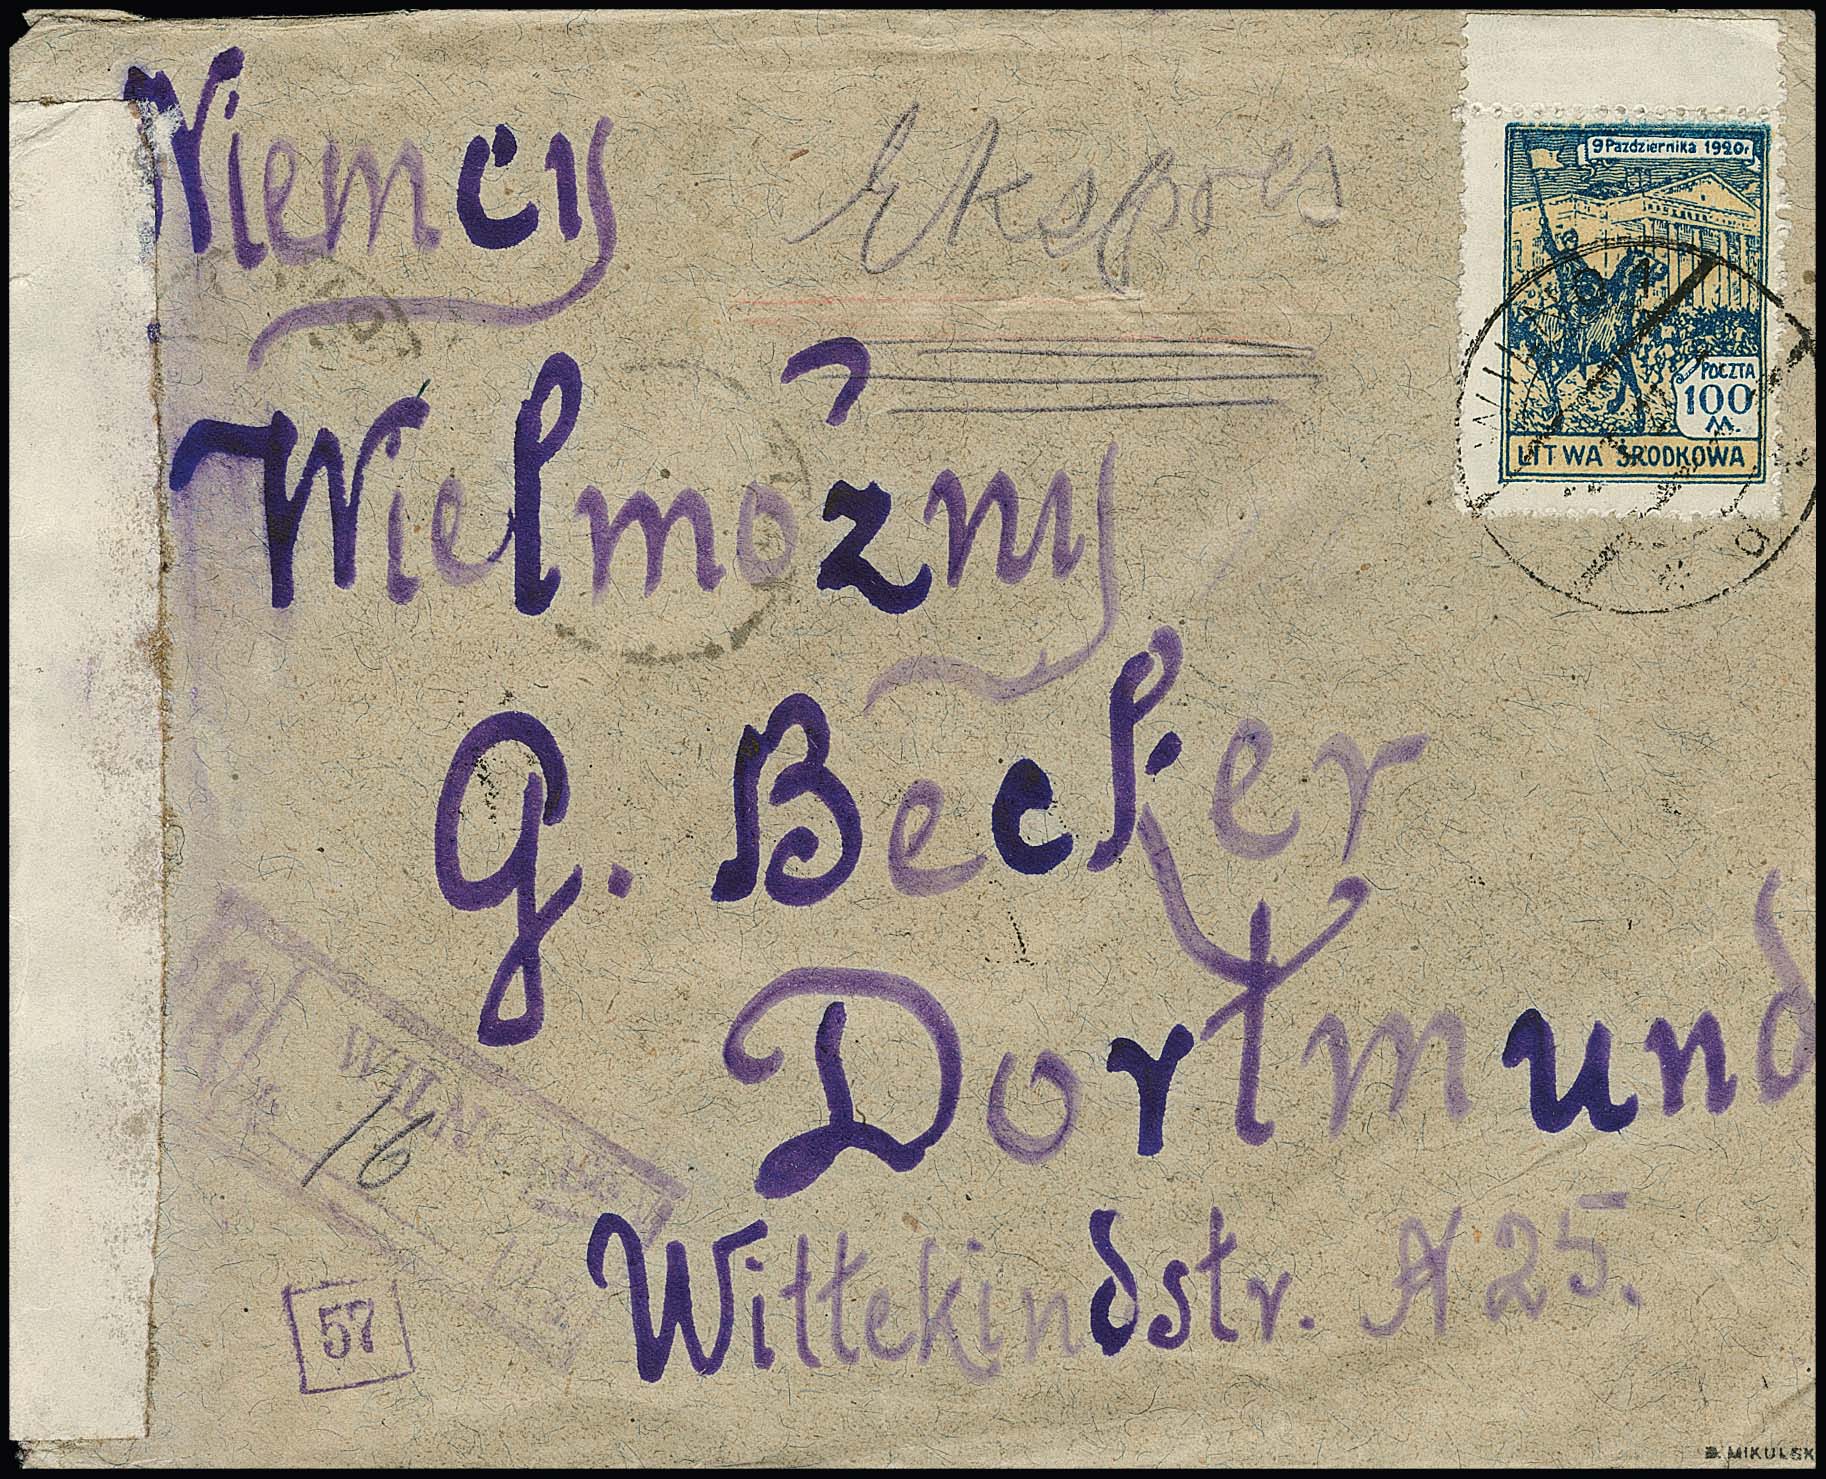 Niemcy
Ekspres
9 Pazdziernika 1920r
POCZTA
100
M.
LITWA ŚRODKOWA
WILNO 1
Wielmożny
G. Becker
Dortmund
WILNO
16
Wittekindstr. N 25.
57
B. MIKULSK